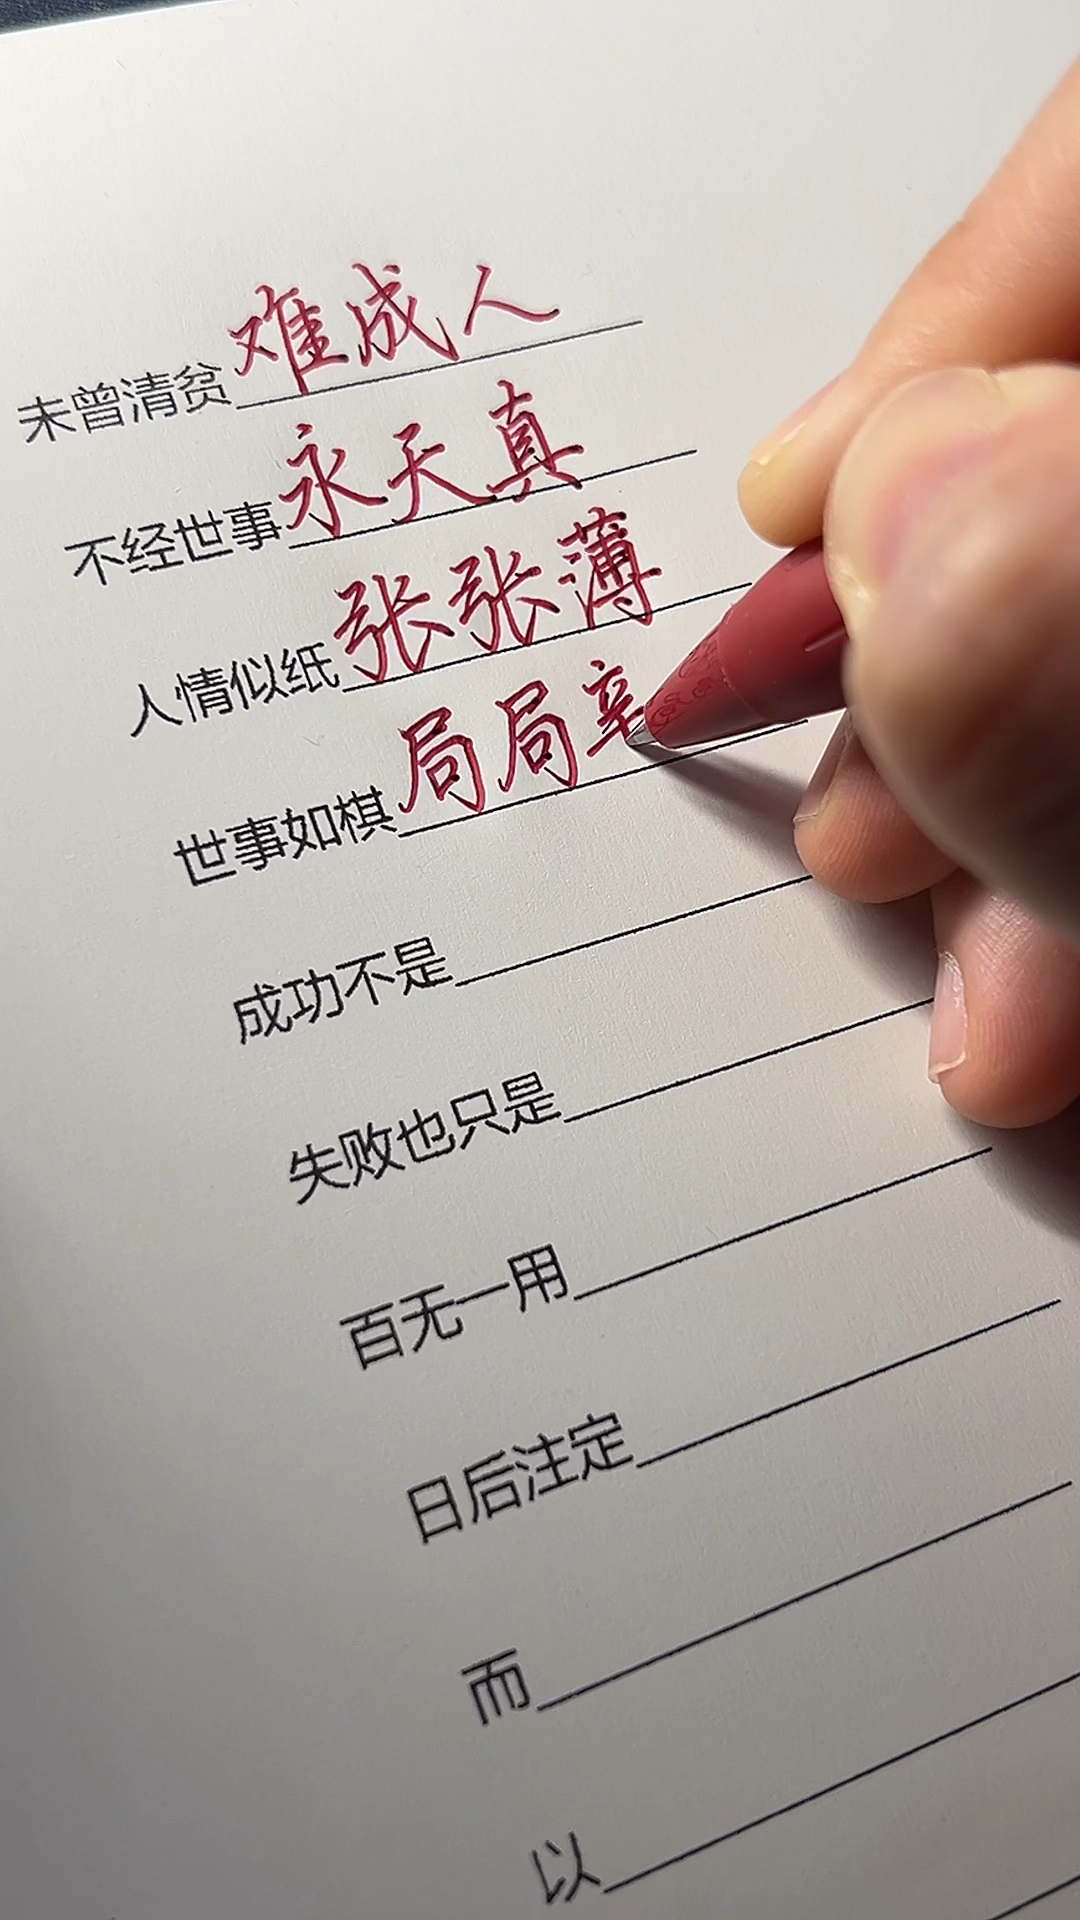 未曾清贫难成人
不经世事永天真
人情似纸张张薄
世事如棋局局辛
成功不是
失败也只是
百无一用
日后注定
而
以